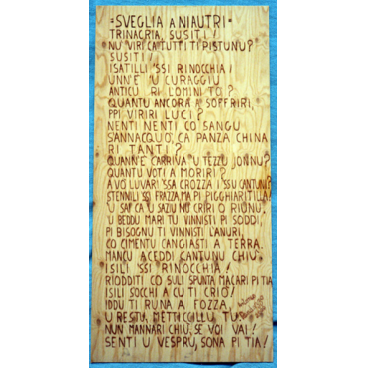 "SVEGLIA A NIAUTRI"
TRINACRIA, SUSITI!
NU' VIRI CA TUTTI TI PISTUNU?
SUSITI!
ISATILLI 'SSI RINOCCHIA!
UNN'E' U CURAGGIU
ANTICU RI L'OMINI TO'?
QUANTU ANCORA A SOFFRIRI,
PPI VIRIRI LUCI?
NENTI NENTI CO SANGU
S'ANNACQUO', CA PANZA CHINA
RI TANTI?
QUANN'E' C'ARRIVA 'U TEZZU JONNU?
QUANTU VOTI A MORIRI?
A VO' LUVARI 'SSA CROZZA I SSU CANTUNI?
STENNILI SSI FRAZZA, MA PI PIGGHIARITILLA!
U SAI CA U SAZIU NO CRIRI O RIUNU,
U BEDDU MARI TU VINNISTI PI SODDI,
PI BISOGNU TI VINNISTI L'ANURI,
CO CIMENTU CANGIASTI A TERRA.
MANCU ACEDDI CANTUNU CHIU'
ISILI SSI RINOCCHIA!
RIODDITI CO SULI SPUNTA MACARI PI TIA
ISILI SOCCHI A CU TI CRIO'!
IDDU TI RUNA A FOZZA,
U RESTU, METTICCILLU TU,
NUN MANNARI CHIU', SE VOI VAI!
SENTI U VESPRU, SONA PI TIA!